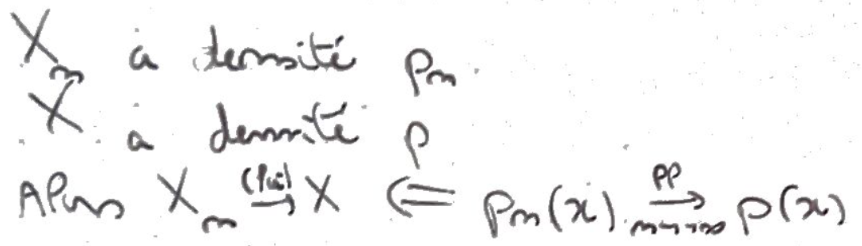 Xₙ à densité pₙ.
X à densité p
Alors Xₙ \xrightarrow{(loi)} X ⇐ pₙ(x) \xrightarrow[n→+∞]{pp} p(x)